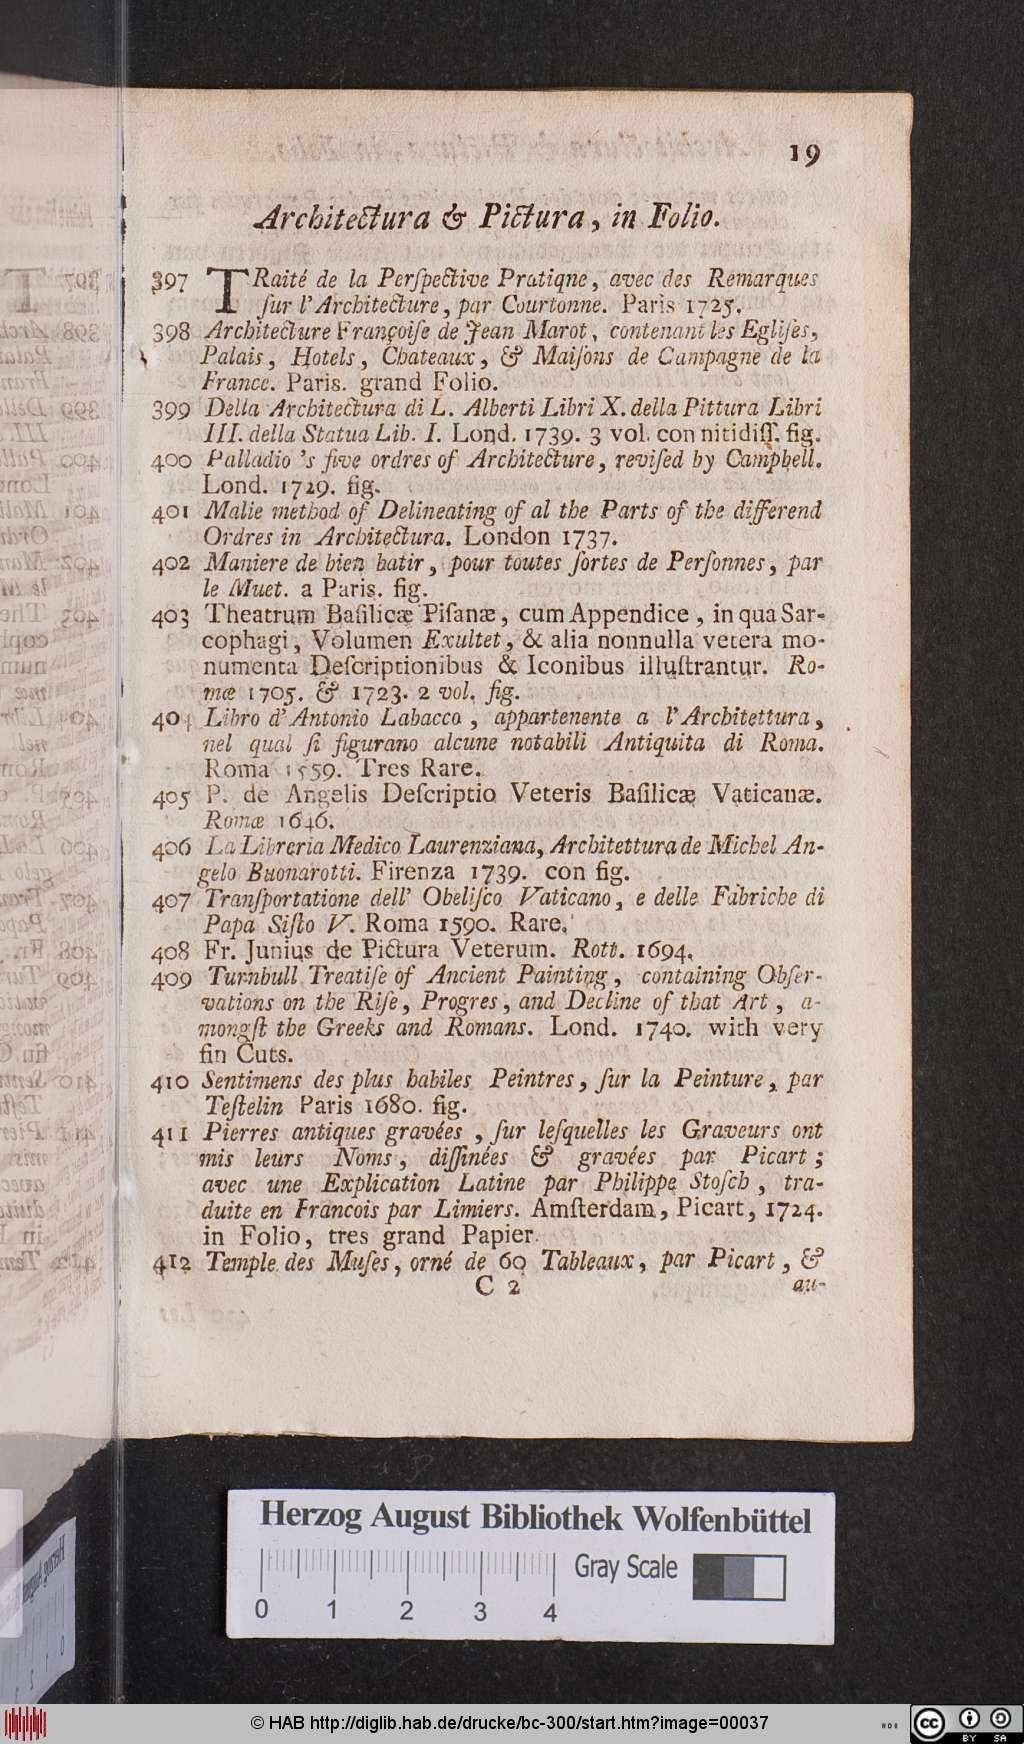 19
Architectura & Pictura, in Folio.
397 TRaité de la Perſpective Pratiqne, avec des Remarques
ſur l'Architecture, par Courtonne. Paris 1725.
398 Architecture Françoiſe de Jean Marot, contenant les Egliſes,
Palais, Hotels, Chateaux, & Maiſons de Campagne de la
France. Paris. grand Folio.
399 Della Architectura di L. Alberti Libri X. della Pittura Libri
III. della Statua Lib. I. Lond. 1739. 3 vol. con nitidiſſ. fig.
400 Palladio 's five ordres of Architecture, reviſed by Campbell.
Lond. 1729. fig.
401 Malie method of Delineating of al the Parts of the differend
Ordres in Architectura. London 1737.
402 Maniere de bien batir, pour toutes ſortes de Perſonnes, par
le Muet. a Paris. fig.
403 Theatrum Baſilicæ Piſanæ, cum Appendice, in qua Sar-
cophagi, Volumen Exultet, & alia nonnulla vetera mo-
numenta Deſcriptionibus & Iconibus illuſtrantur. Ro-
mæ 1705. & 1723. 2 vol. fig.
404 Libro d'Antonio Labacco, appartenente a l'Architettura,
nel qual ſi figurano alcune notabili Antiquita di Roma.
Roma 1559. Tres Rare.
405 P. de Angelis Deſcriptio Veteris Baſilicæ Vaticanæ.
Romæ 1646.
406 La Libreria Medico Laurenziana, Architettura de Michel An-
gelo Buonarotti. Firenza 1739. con fig.
407 Tranſportatione dell' Obeliſco Vaticano, e delle Fabriche di
Papa Siſto V. Roma 1590. Rare.
408 Fr. Junius de Pictura Veterum. Rott. 1694.
409 Turnbull Treatiſe of Ancient Painting, containing Obſer-
vations on the Riſe, Progres, and Decline of that Art, a-
mongſt the Greeks and Romans. Lond. 1740. with very
fin Cuts.
410 Sentimens des plus habiles Peintres, ſur la Peinture, par
Teſtelin Paris 1680. fig.
411 Pierres antiques gravées, ſur leſquelles les Graveurs ont
mis leurs Noms, diſſinées & gravées par Picart;
avec une Explication Latine par Philippe Stoſch, tra-
duite en Francois par Limiers. Amſterdam, Picart, 1724.
in Folio, tres grand Papier.
412 Temple des Muſes, orné de 60 Tableaux, par Picart, &
C 2 au-
Herzog August Bibliothek Wolfenbüttel
Gray Scale
0 1 2 3 4
© HAB http://diglib.hab.de/drucke/bc-300/start.htm?image=00037
cc BY SA